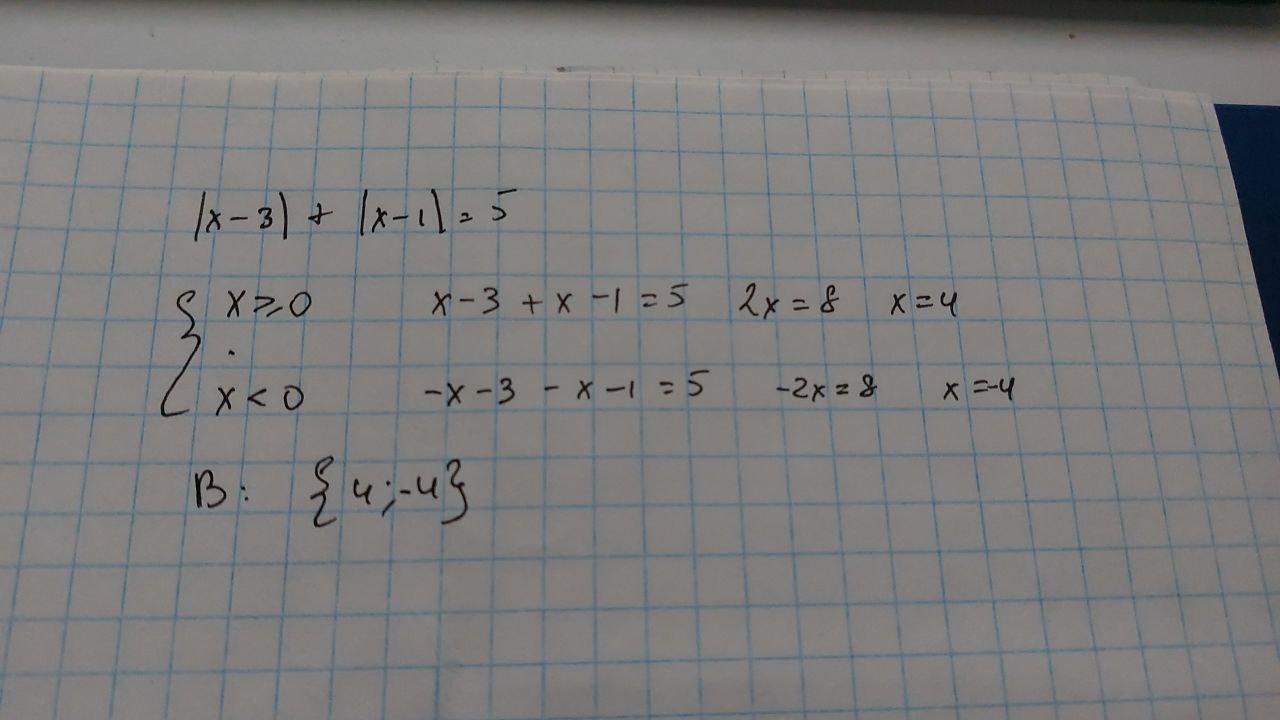 |x-3| + |x-1| = 5
{ x ≥ 0 x-3 + x-1 = 5 2x = 8 x = 4
x < 0 -x-3 -x-1 = 5 -2x = 8 x = -4
В: {4;-4}